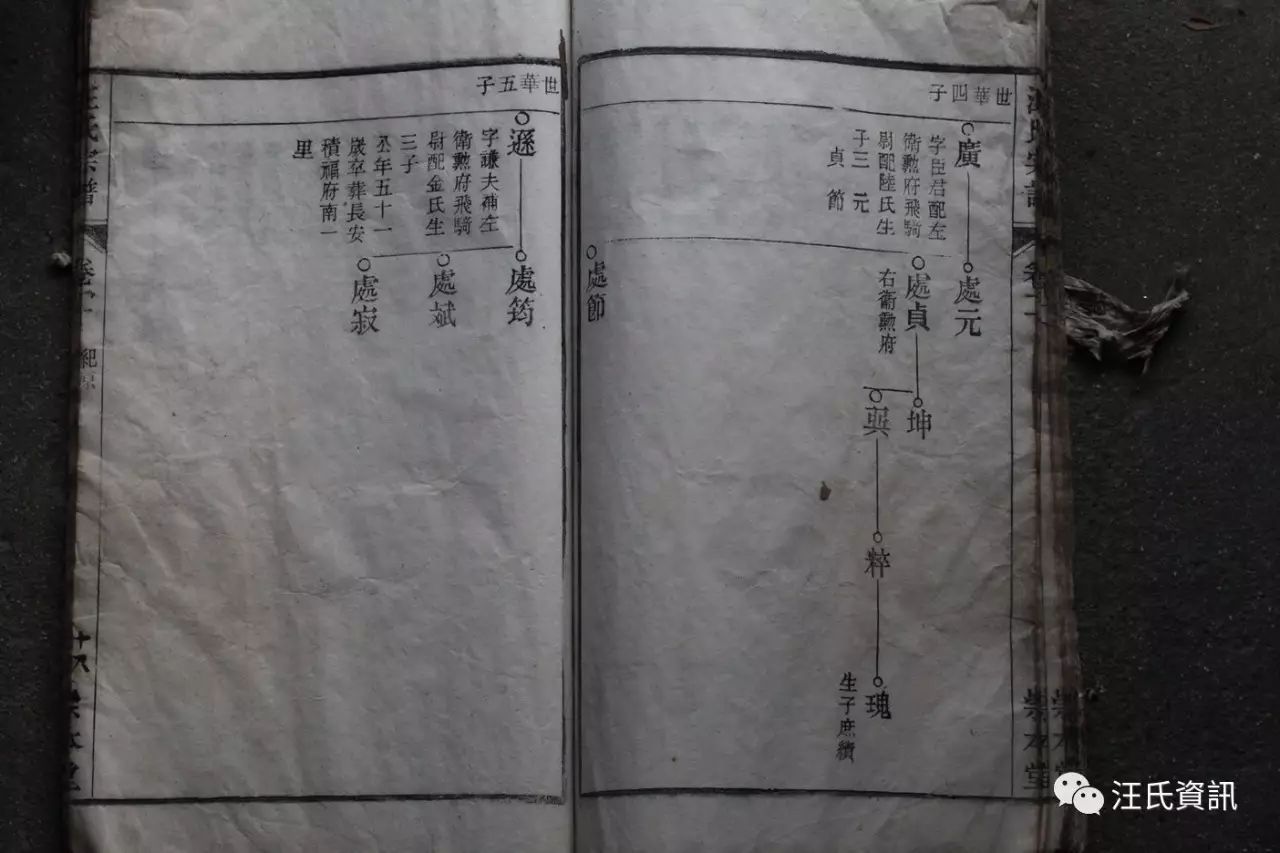 世華四子
廣
字臣君配左
衛勲府飛騎
尉配陸氏生
子三 元
貞 節
處元
處貞
右衛勲府
坤
粹
瑰
生子庶績
處節
世華五子
遜
字謙夫補左
衛勲府飛騎
尉配金氏生
三子
年五十一
歲卒葬長安
積福府南一
里
處筠
處斌
處寂
氏宗譜
崇本堂
汪氏資訊